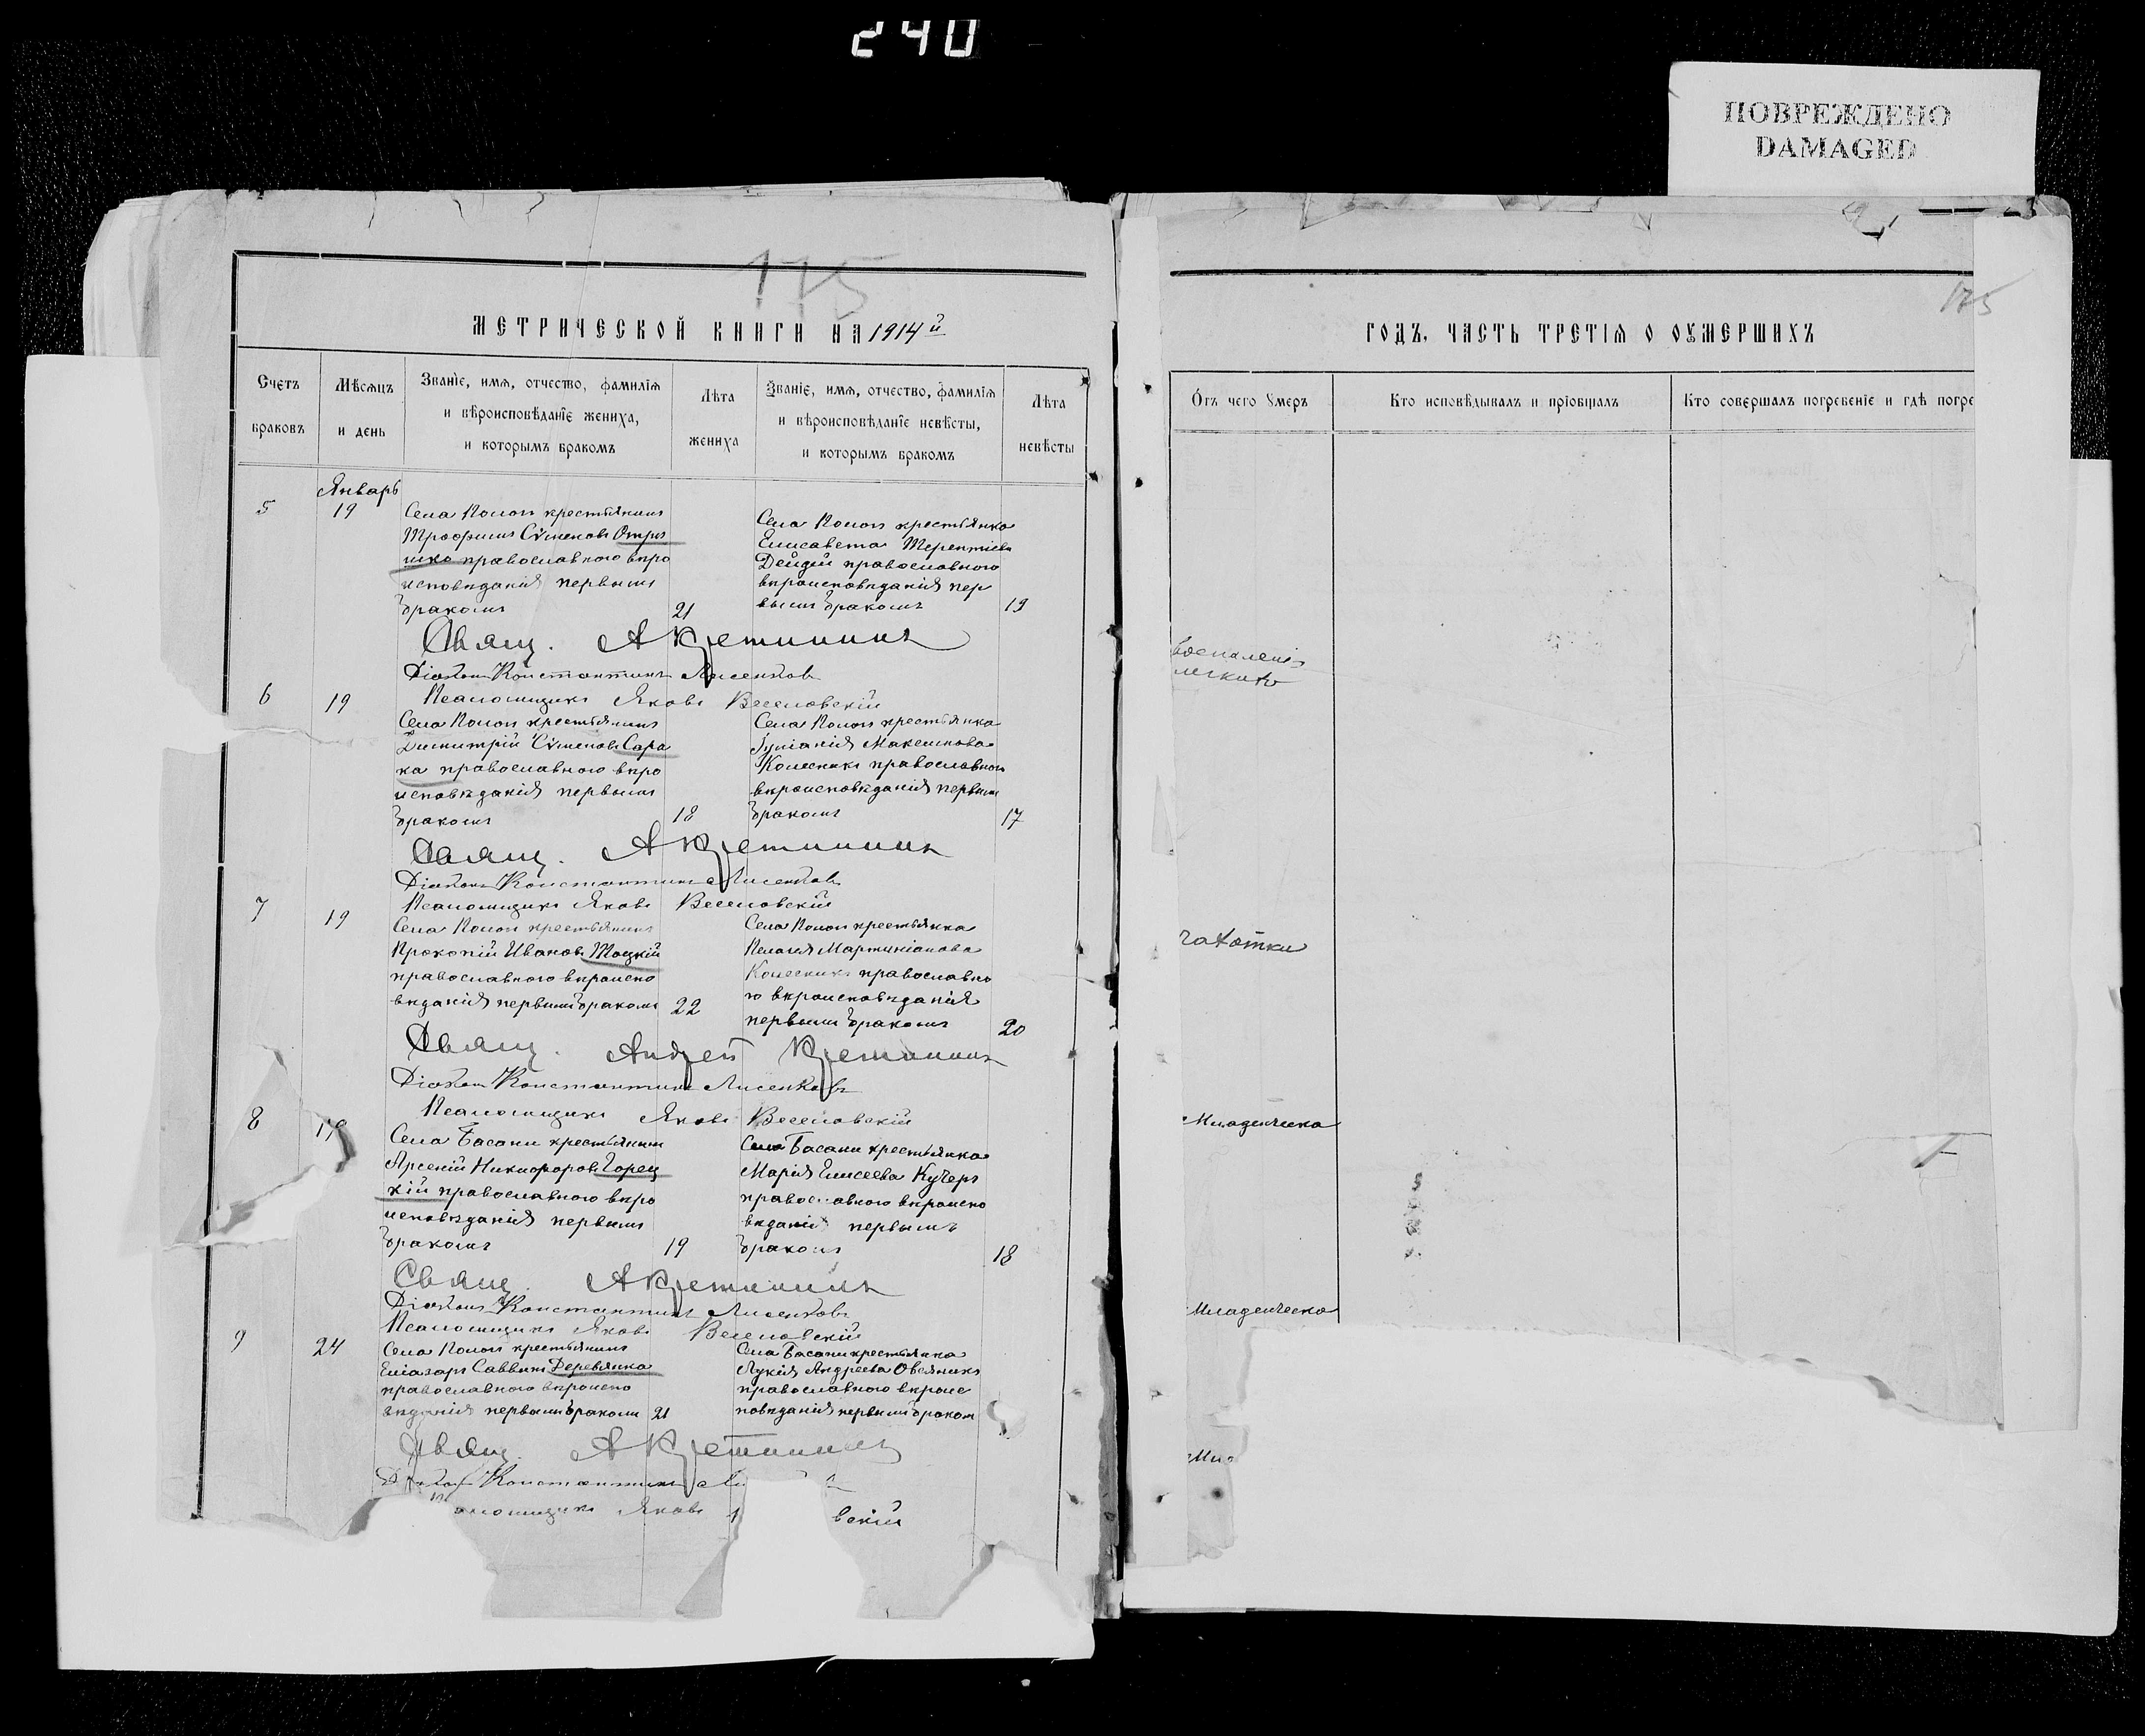 240
ПОВРЕЖДЕНО
DAMAGED
175
МЕТРИЧЕСКОЙ КНИГИ НА 1914й
Счетъ браковъ
Мѣсяцъ и день
Званіе, имя, отчество, фамилія и вѣроисповѣданіе жениха, и которымъ бракомъ
Лѣта жениха
Званіе, имя, отчество, фамилія и вѣроисповѣданіе невѣсты, и которымъ бракомъ
Лѣта невѣсты
Январь
5
19
Села Пологъ крестьянинъ
Трофимъ Сѵменовъ
православнаго вѣро
исповѣданія первымъ
бракомъ
21
Села Пологъ крестьянка
Елисавета Терентіева
Дейдей православного
вѣроисповѣданія пер
вымъ бракомъ
19
Свящ. А Кретининъ
Діаконъ Константинъ Лисенковъ
Псаломщикъ Яковъ Веселовскій
6
19
Села Пологъ крестьянинъ
Димитрій Сѵменовъ Сара
ка православного вѣро
исповѣданія первымъ
бракомъ
18
Села Пологъ крестьянка
Іуліанія Максимова
Колесникъ православного
вѣроисповѣданія первымъ
бракомъ
17
Свящ. А Кретининъ
Діаконъ Константинъ Лисенковъ
Псаломщикъ Яковъ Веселовскій
7
19
Села Пологъ крестьянинъ
Прокопій Ивановъ Тоцкій
православного вѣроиспо
вѣданія первымъ бракомъ
22
Села Пологъ крестьянка
Пелагія Мартиніанова
Колесникъ православно
го вѣроисповѣданія
первымъ бракомъ
20
Свящ. Андрей Кретининъ
Діаконъ Константинъ Лисенковъ
Псаломщикъ Яковъ Веселовскій
8
19
Села Басани крестьянинъ
Арсеній Никифоровъ Горец
кій православного вѣро
исповѣданія первымъ
бракомъ
19
Села Басани крестьянка
Марія Елисеева Кучеръ
православного вѣроиспо
вѣданія первымъ
бракомъ
18
Свящ. А Кретининъ
Діаконъ Константинъ Лисенковъ
Псаломщикъ Яковъ Веселовскій
9
24
Села Пологъ крестьянинъ
Еліазаръ Саввинъ Деревянка
православного вѣроиспо
вѣданія первымъ бракомъ
21
Села Басани крестьянка
Лукія Андреева Овсяникъ
православного вѣроис
повѣданія первымъ бракомъ
Свящ. А Кретининъ
Константинъ
аломщикъ Яковъ вскій
175
ГОДЪ, ЧАСТЬ ТРЕТІЯ О ОУМЕРШИХЪ
Отъ чего умеръ
Кто исповѣдывалъ и пріобщалъ
Кто совершалъ погребеніе и гдѣ погре
воспаленія
легкихъ
чахотки
Младенческа
Младенческа